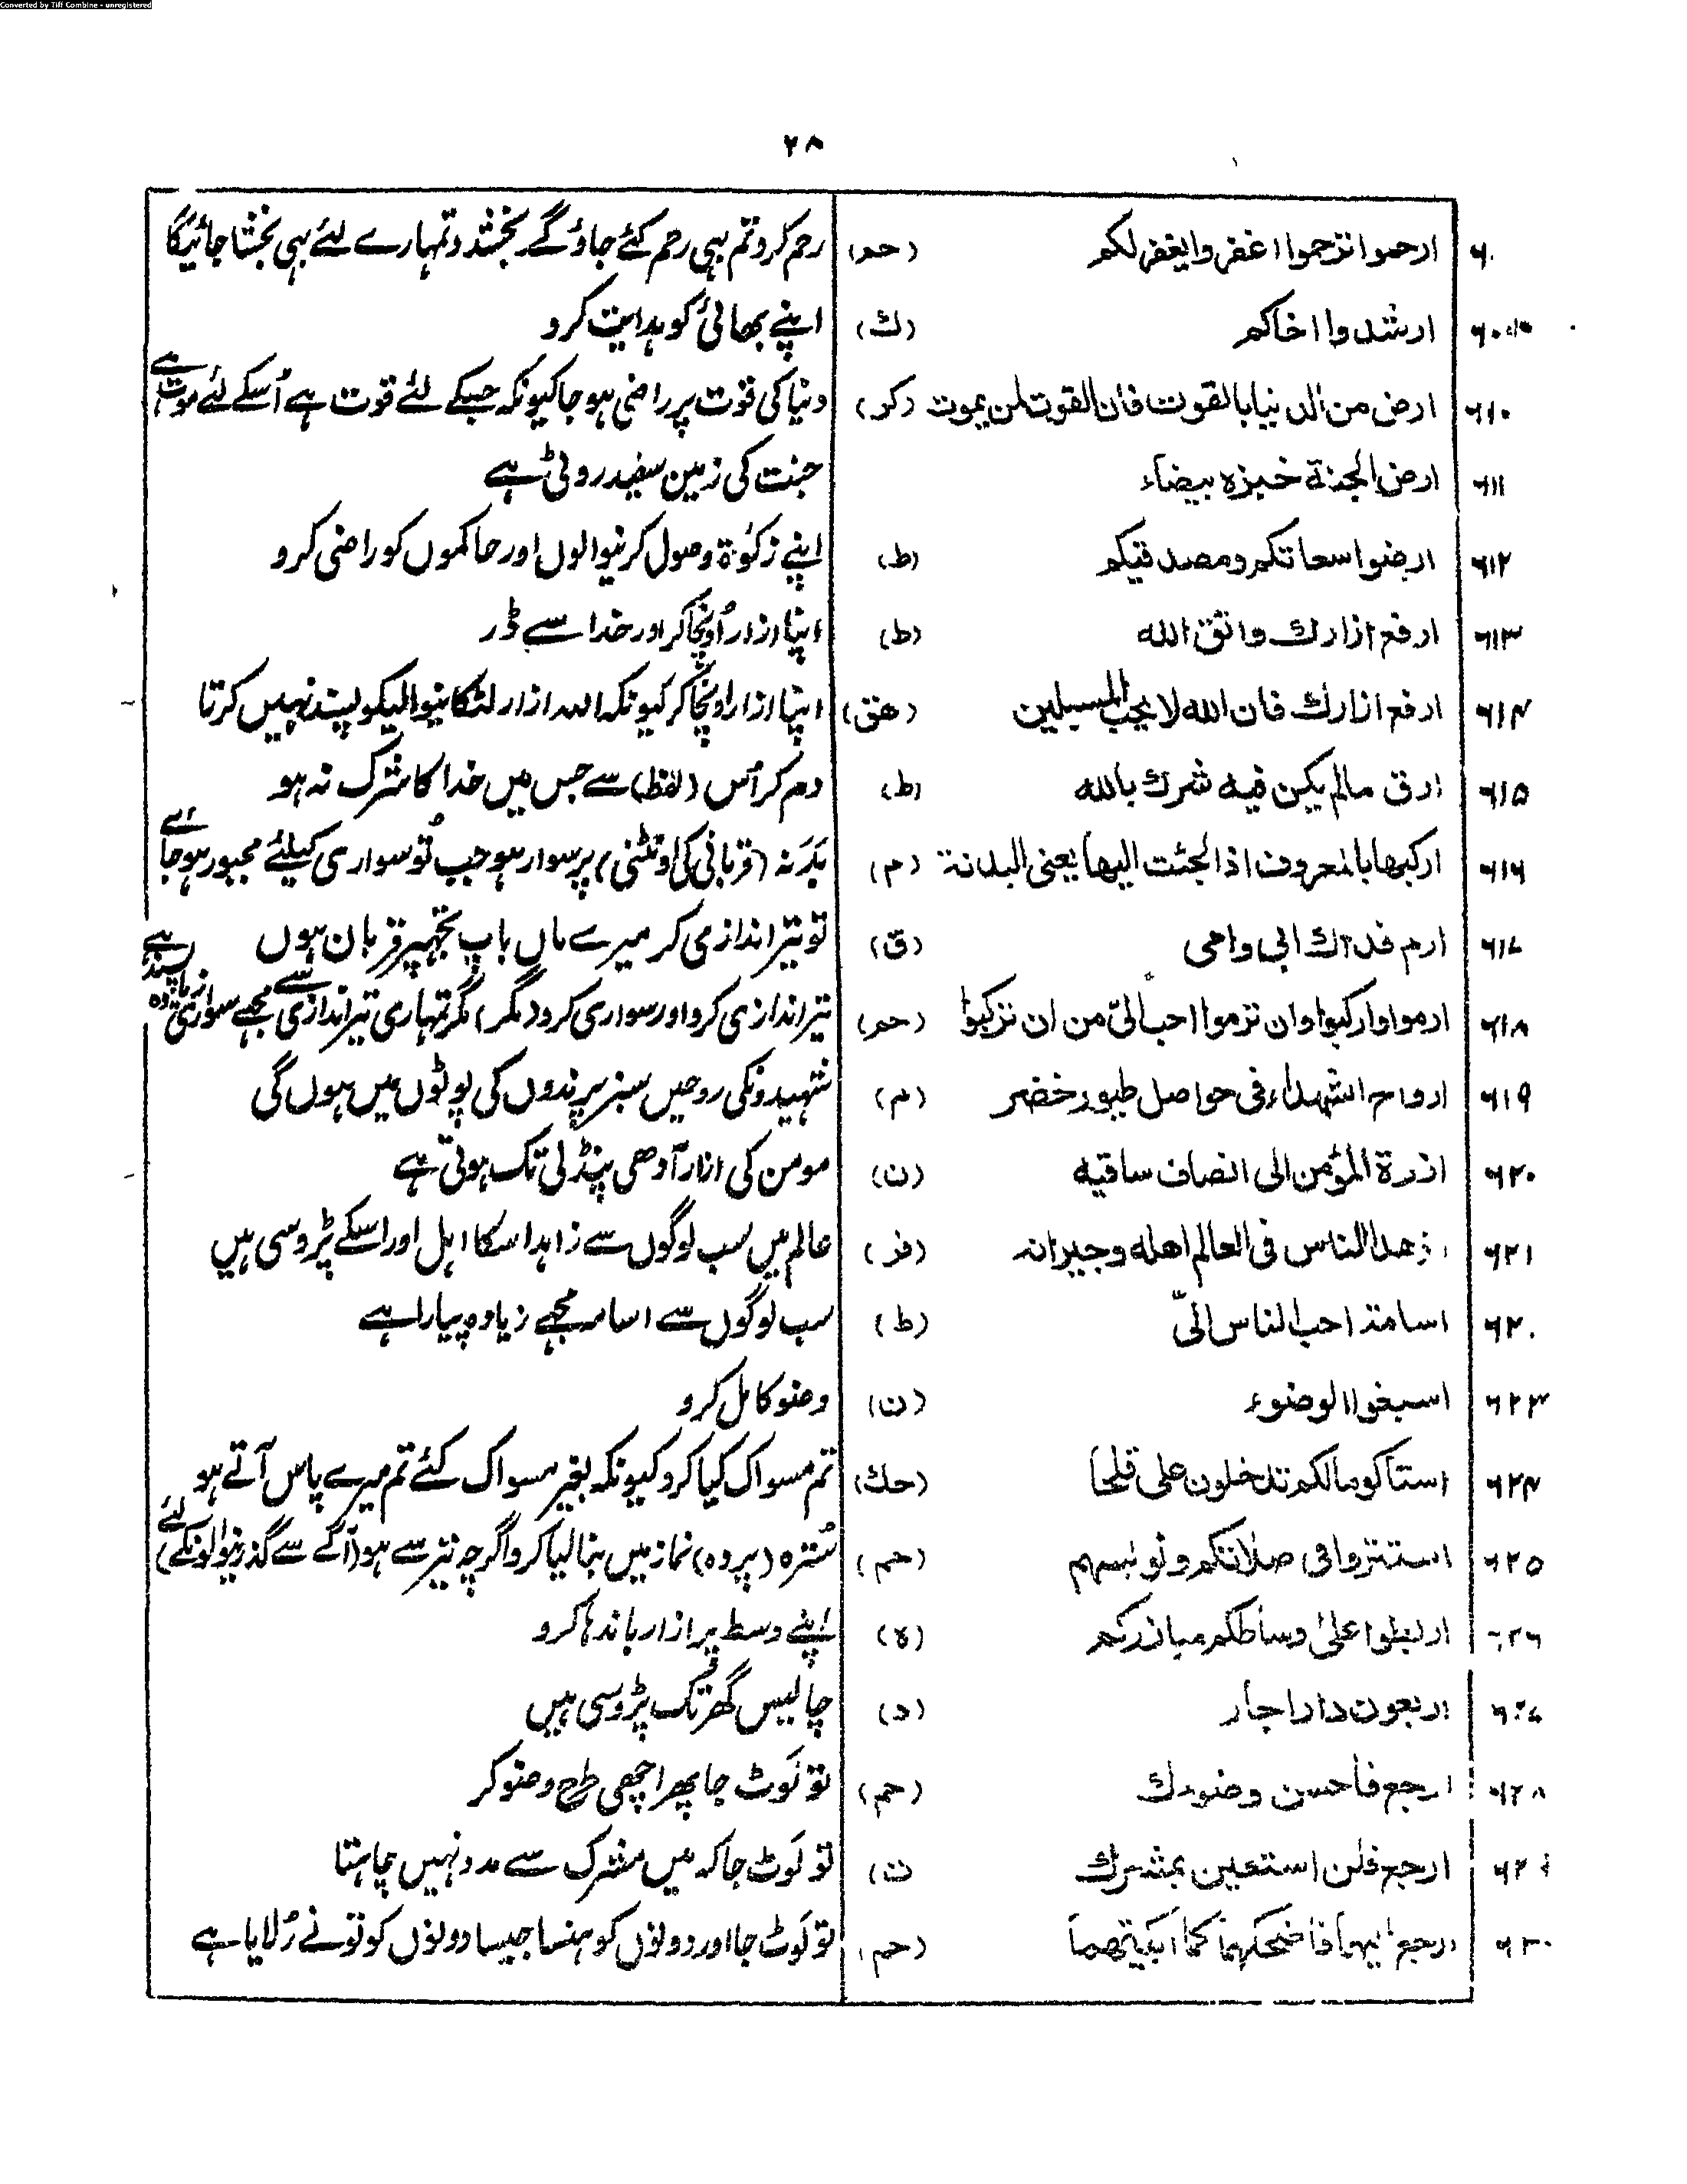 Converted by Tiff Combine - unregistered
۲۸
ارحموا ترحموا اغفروا يغفر لكم (حم) رحم کرو تم بہی رحم کئے جاؤ گے بخشدو تمہارے لئے بہی بخشا جائیگا
ارشدوا اخاكم (ك) اپنے بھائی کو ہدایت کرو
۶۱۰ ارض من الدنيا بالقوت فان القوت لمن يموت (كر) دنیا کی قوت پر راضی ہو جا کیونکہ جسکے لئے قوت ہے اُسکے لئے موت ہے
۶۱۱ ارض الجنة خبزه بيضاء جنت کی زمین سفید روٹی ہے
۶۱۲ ارضوا سعاتكم ومصدقيكم (ط) اپنے زکوٰۃ وصول کرنیوالوں اور حاکموں کو راضی کرو
۶۱۳ ارفع ازارك واتق الله (ط) اپنا ازار اُونچا کر اور خدا سے ڈر
۶۱۴ ارفع ازارك فان الله لا يحب المسبلين (هق) اپنا ازار اونچا کر کیونکہ اللہ ازار لٹکانیوالیکو پسند نہیں کرتا
۶۱۵ ارق مالم يكن فيه شرك بالله (ط) دم کر اُس (لفظ) سے جس میں خدا کا شرک نہ ہو
۶۱۶ اركبها بالمعروف اذا لجئت اليها يعنى البدنة (م) بَدَنہ (قربانی کی اونٹنی) پر سوار ہو جب تُو سواری کیلئے مجبور ہو جائے
۶۱۷ ارم فداك ابى وامى (ق) تو تیر اندازی کر میرے ماں باپ تجہپر قربان ہوں
۶۱۸ ارموا واركبوا وان ترموا احب الىّ من ان تركبوا (حم) تیر اندازی کرو اور سواری کرو (مگر) مگر تمہاری تیر اندازی مجھے سواری سے زیادہ پسند ہے
۶۱۹ ارواح الشهداء فى حواصل طيور خضر (م) شہیدونکی روحیں سبز پرندوں کی پوٹوں میں ہوں گی
۶۲۰ ازرة المؤمن الى انصاف ساقيه (ن) مومن کی ازار آدھی پنڈلی تک ہوتی ہے
۶۲۱ ازهد الناس فى العالم اهله وجيرانه (فر) عالم میں سب لوگوں سے زاہد اسکا اہل اور اسکے پڑوسی ہیں
اسامة احب الناس الىّ (ط) سب لوگوں سے اسامہ مجھے زیادہ پیارا ہے
۶۲۳ اسبغوا الوضوء (ن) وضو کامل کرو
۶۲۴ استاكو مالكم تدخلون على قلحا (حك) تم مسواک کیا کرو کیونکہ بغیر مسواک کئے تم میرے پاس آتے ہو
۶۲۵ استتروا فى صلاتكم ولو بسهم (حم) سُترہ (پردہ) نماز میں بنا لیا کرو اگرچہ تیر سے ہو (آگے سے گذرنیوالونکے لئے)
۶۲۶ اربطوا على اوساطكم ميازركم (ه) اپنے وسط پر ازار باندہا کرو
۶۲۷ اربعون دارا جار (د) چالیس گھر تک پڑوسی ہیں
۶۲۸ ارجع فاحسن وضوءك (حم) تو لَوٹ جا پھر اچھی طرح وضو کر
ارجع فلن استعين بمشرك تو لَوٹ جا کہ میں مشرک سے مدد نہیں چاہتا
ارجع اليهما فاضحكهما كما ابكيتهما (حم) تو لَوٹ جا اور دونوں کو ہنسا جیسا دونوں کو تونے رُلایا ہے